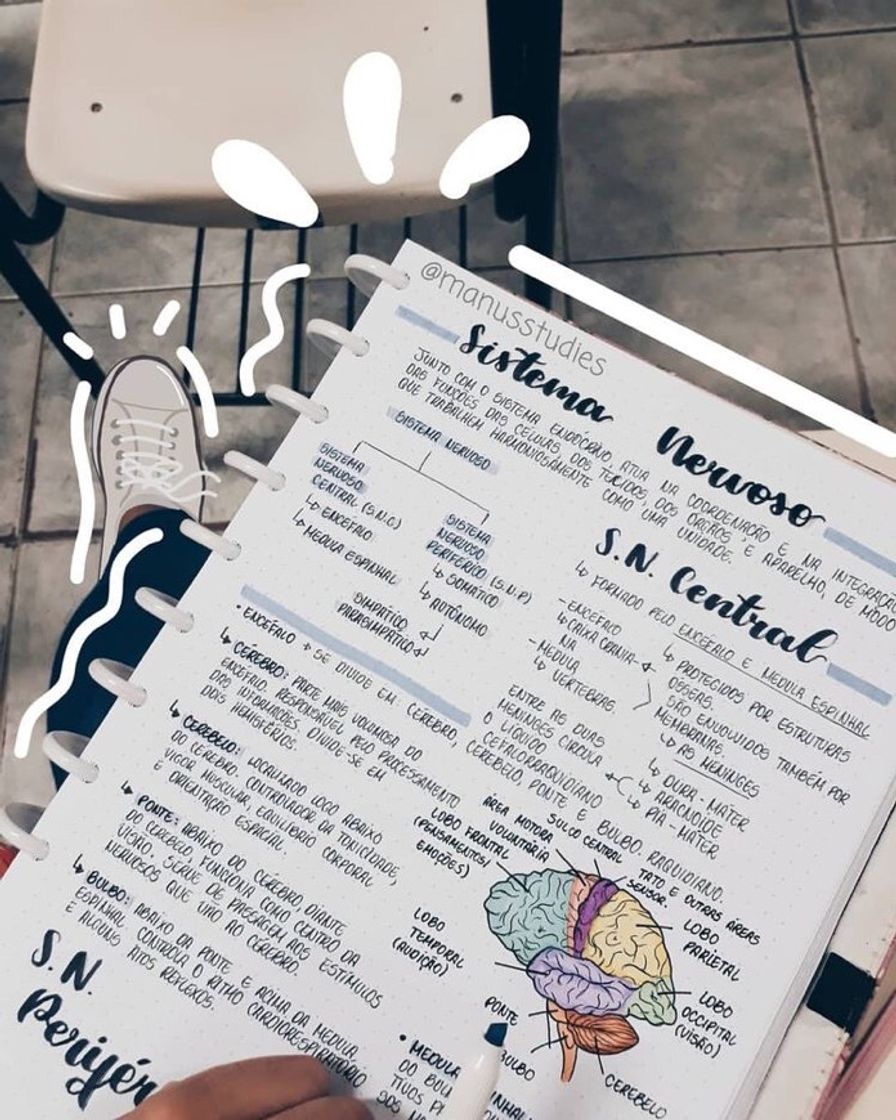 @manusstudies
Sistema Nervoso
JUNTO COM O SISTEMA ENDÓCRINO, ATUA NA COORDENAÇÃO E NA INTEGRAÇÃO
DAS FUNÇÕES DAS CÉLULAS, DOS TECIDOS, DOS ORGÃOS E APARELHO, DE MODO
QUE TRABALHEM HARMONIOSAMENTE COMO UMA UNIDADE.
SISTEMA NERVOSO
SISTEMA
NERVOSO
CENTRAL (S.N.C)
↳ ENCEFALO
↳ MEDULA ESPINHAL
SISTEMA
NERVOSO
PERIFÉRICO (S.N.P)
↳ SOMÁTICO
↳ AUTÔNOMO
SIMPATICO
PARASIMPATICO
S.N. Central
↳ FORMADO PELO ENCEFALO E MEDULA ESPINHAL
- ENCEFALO
↳ CAIXA CRANIA-
NA
- MEDULA
↳ VERTEBRAS.
↳ PROTEGIDOS POR ESTRUTURAS
OSSEAS.
SÃO ENVOLVIDOS TAMBÉM POR
MEMBRANAS,
↳ AS MENINGES
↳ DURA-MATER
↳ ARACNOIDE
↳ PIA-MATER
ENTRE AS DUAS
MENINGES CIRCULA
O LÍQUIDO
CEFALORRAQUIDIANO
• ENCEFALO → SE DIVIDE EM: CÉREBRO, CEREBELO, PONTE E BULBO. RAQUIDIANO.
↳ CÉREBRO: PARTE MAIS VOLUMOSA DO
ENCEFALO. RESPONSÁVEL PELO PROCESSAMENTO
DAS INFORMAÇÕES. DIVIDE-SE EM
DOIS HEMISFÉRIOS.
↳ CEREBELO: LOCALIZADO LOGO ABAIXO
DO CÉREBRO. CONTROLADOR DA TONICIDADE,
VIGOR MUSCULAR, EQUILIBRIO CORPORAL
E ORIENTAÇÃO ESPACIAL.
↳ PONTE: ABAIXO DO CÉREBRO DIANTE
DO CEREBELO, FUNCIONA COMO CENTRO DA
VISÃO, SERVE DE PASSAGEM AOS ESTÍMULOS
NERVOSOS QUE VÃO AO CÉREBRO.
↳ BULBO: ABAIXO DA PONTE E ACIMA DA MEDULA
ESPINHAL CONTROLA O RITMO CARDIORRESPIRATÓRIO
E ALGUNS ATOS REFLEXOS.
ÁREA MOTORA
VOLUNTÁRIA
SULCO CENTRAL
TATO E OUTRAS ÁREAS
SENSOR.
LOBO FRONTAL
(PENSAMENTOS/
EMOÇÕES)
LOBO
PARIETAL
LOBO
TEMPORAL
(AUDIÇÃO)
LOBO
OCCIPITAL
(VISÃO)
PONTE
BULBO
CEREBELO
S.N.
Perifér
• MEDULA
DO BUL